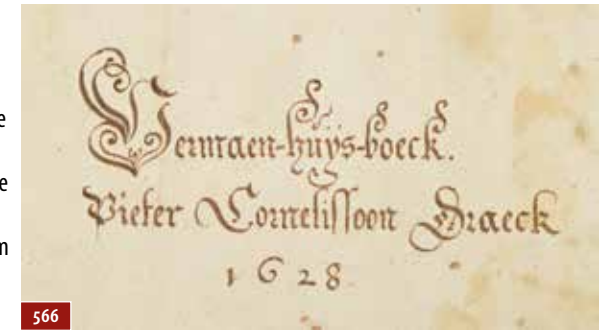 Vermaen-huys-boeck.
Pieter Cornelissoon Draeck
1628
566